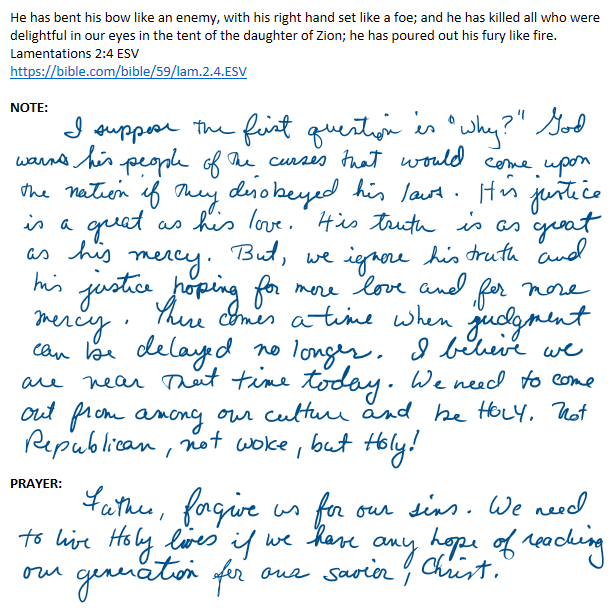 He has bent his bow like an enemy, with his right hand set like a foe; and he has killed all who were
delightful in our eyes in the tent of the daughter of Zion; he has poured out his fury like fire.
Lamentations 2:4 ESV
https://bible.com/bible/59/lam.2.4.ESV
NOTE:
I suppose the first question is "why?" God
warns his people of the curses that would come upon
the nation if they disobeyed his laws. His justice
is a great as his love. His truth is as great
as his mercy. But, we ignore his truth and
his justice hoping for more love and for more
mercy. There comes a time when judgment
can be delayed no longer. I believe we
are near that time today. We need to come
out from among our culture and be HOLY. Not
Republican, not woke, but Holy!
PRAYER:
Father, forgive us for our sins. We need
to live Holy lives if we have any hope of reaching
our generation for our savior, Christ.